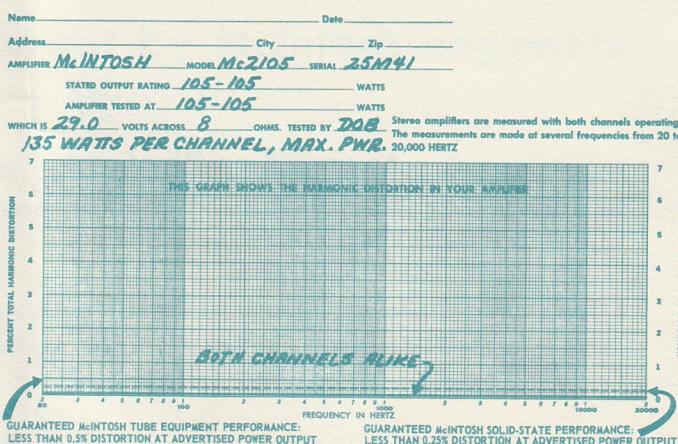 Name Date
Address City Zip
AMPLIFIER McINTOSH MODEL Mc2105 SERIAL 25M41
STATED OUTPUT RATING 105-105 WATTS
AMPLIFIER TESTED AT 105-105 WATTS
WHICH IS 29.0 VOLTS ACROSS 8 OHMS. TESTED BY DOB
Stereo amplifiers are measured with both channels operating
The measurements are made at several frequencies from 20 to
20,000 HERTZ
135 WATTS PER CHANNEL, MAX. PWR.
THIS GRAPH SHOWS THE HARMONIC DISTORTION IN YOUR AMPLIFIER
PERCENT TOTAL HARMONIC DISTORTION
7 7
6 6
5 5
4 4
3 3
2 2
1 1
0 0
BOTH CHANNELS ALIKE
20 100 1000 10000 20000
FREQUENCY IN HERTZ
GUARANTEED McINTOSH TUBE EQUIPMENT PERFORMANCE:
LESS THAN 0.5% DISTORTION AT ADVERTISED POWER OUTPUT
GUARANTEED McINTOSH SOLID-STATE PERFORMANCE:
LESS THAN 0.25% DISTORTION AT ADVERTISED POWER OUTPUT